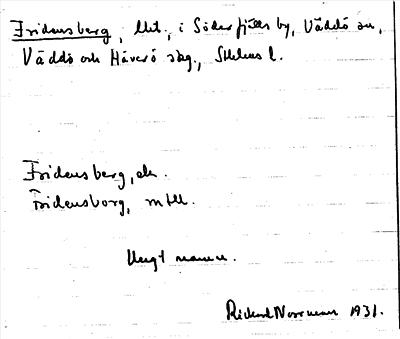 Fridensberg, lht. i Söderfjälls by, Väddö sn,
Väddö och Häverö skg., Sthlms l.
Fridensberg, ek.
Fridensborg, mtll.
Ungt namn.
Rickard Norrman 1931.